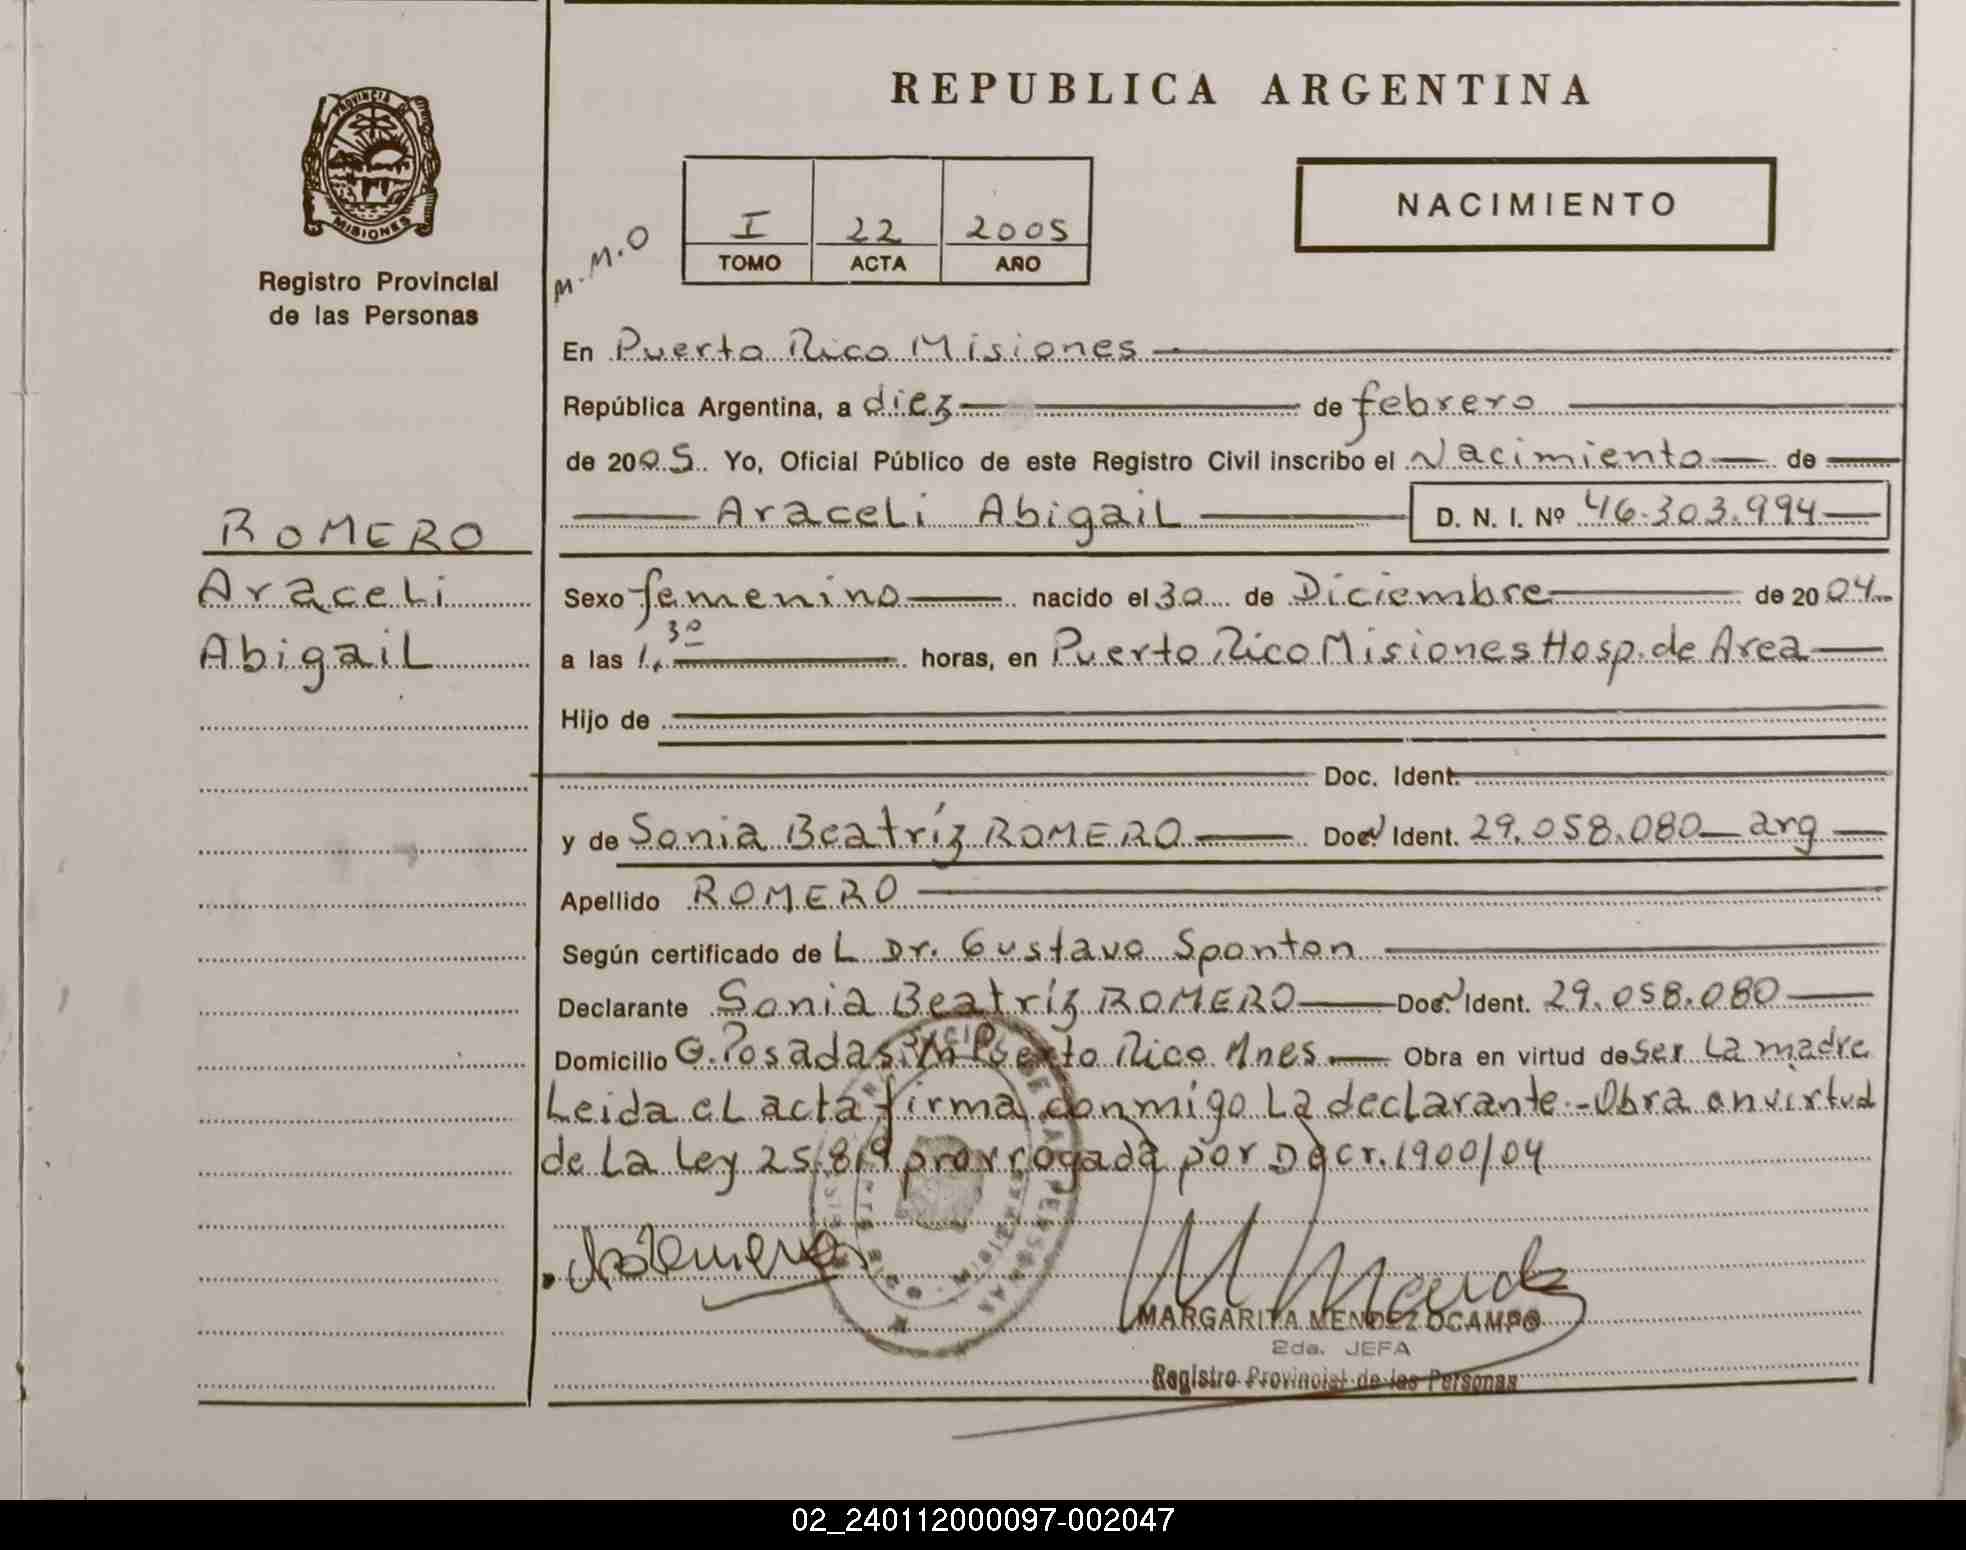 REPUBLICA ARGENTINA
PROVINCIA DE
MISIONES
Registro Provincial
de las Personas
M.M.O
I 22 2005
TOMO ACTA AÑO
NACIMIENTO
En Puerto Rico Misiones
República Argentina, a diez de febrero
de 2005. Yo, Oficial Público de este Registro Civil inscribo el Nacimiento de
Araceli Abigail D. N. I. Nº 46.303.994
ROMERO
Araceli
Abigail
Sexo femenino nacido el 30 de Diciembre de 2004
a las 1,30 horas, en Puerto Rico Misiones Hosp. de Area
Hijo de
Doc. Ident.
y de Sonia Beatríz ROMERO Doc. Ident. 29.058.080 arg
Apellido ROMERO
Según certificado de L Dr. Gustavo Sponton
Declarante Sonia Beatríz ROMERO Doc. Ident. 29.058.080
Domicilio G. Posadas Puerto Rico Mnes. Obra en virtud de ser La madre
Leida el acta firma conmigo La declarante.-Obra en virtud
de La Ley 25.819 prorrogada por Decr. 1900/04
MARGARITA MENDEZ OCAMPO
2da. JEFA
Registro Provincial de las Personas
02_240112000097-002047